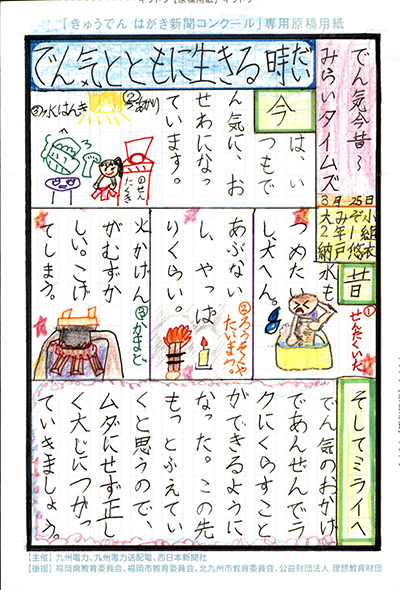 「きゅうでん はがき新聞コンクール」専用原稿用紙
でん気とともに生きる時だい
でん気今昔〜
みらいタイムズ
3月25日
大みぞ小
2年1組
納戸悠衣
今
は、い
つもで
ん気に お
せわになっ
ています。
①せんたくき
②あかり
③水はんき
昔
①せんたくいた
水も
つめたい
し大へん。
②ろうそくや
たいまつ。
あぶない
し、やっぱ
りくらい。
③かまど。
火かげん
がむずか
しい。こげ
てしまう。
そしてミライへ
でん気のおかげ
であんぜんでラ
クにくらすこと
ができるように
なった。この先
もっとふえてい
くと思うので、
ムダにせず正し
く大じにつかっ
ていきましょう。
【主催】九州電力、九州電力送配電、西日本新聞社
【後援】福岡県教育委員会、福岡市教育委員会、北九州市教育委員会、公益財団法人 理想教育財団